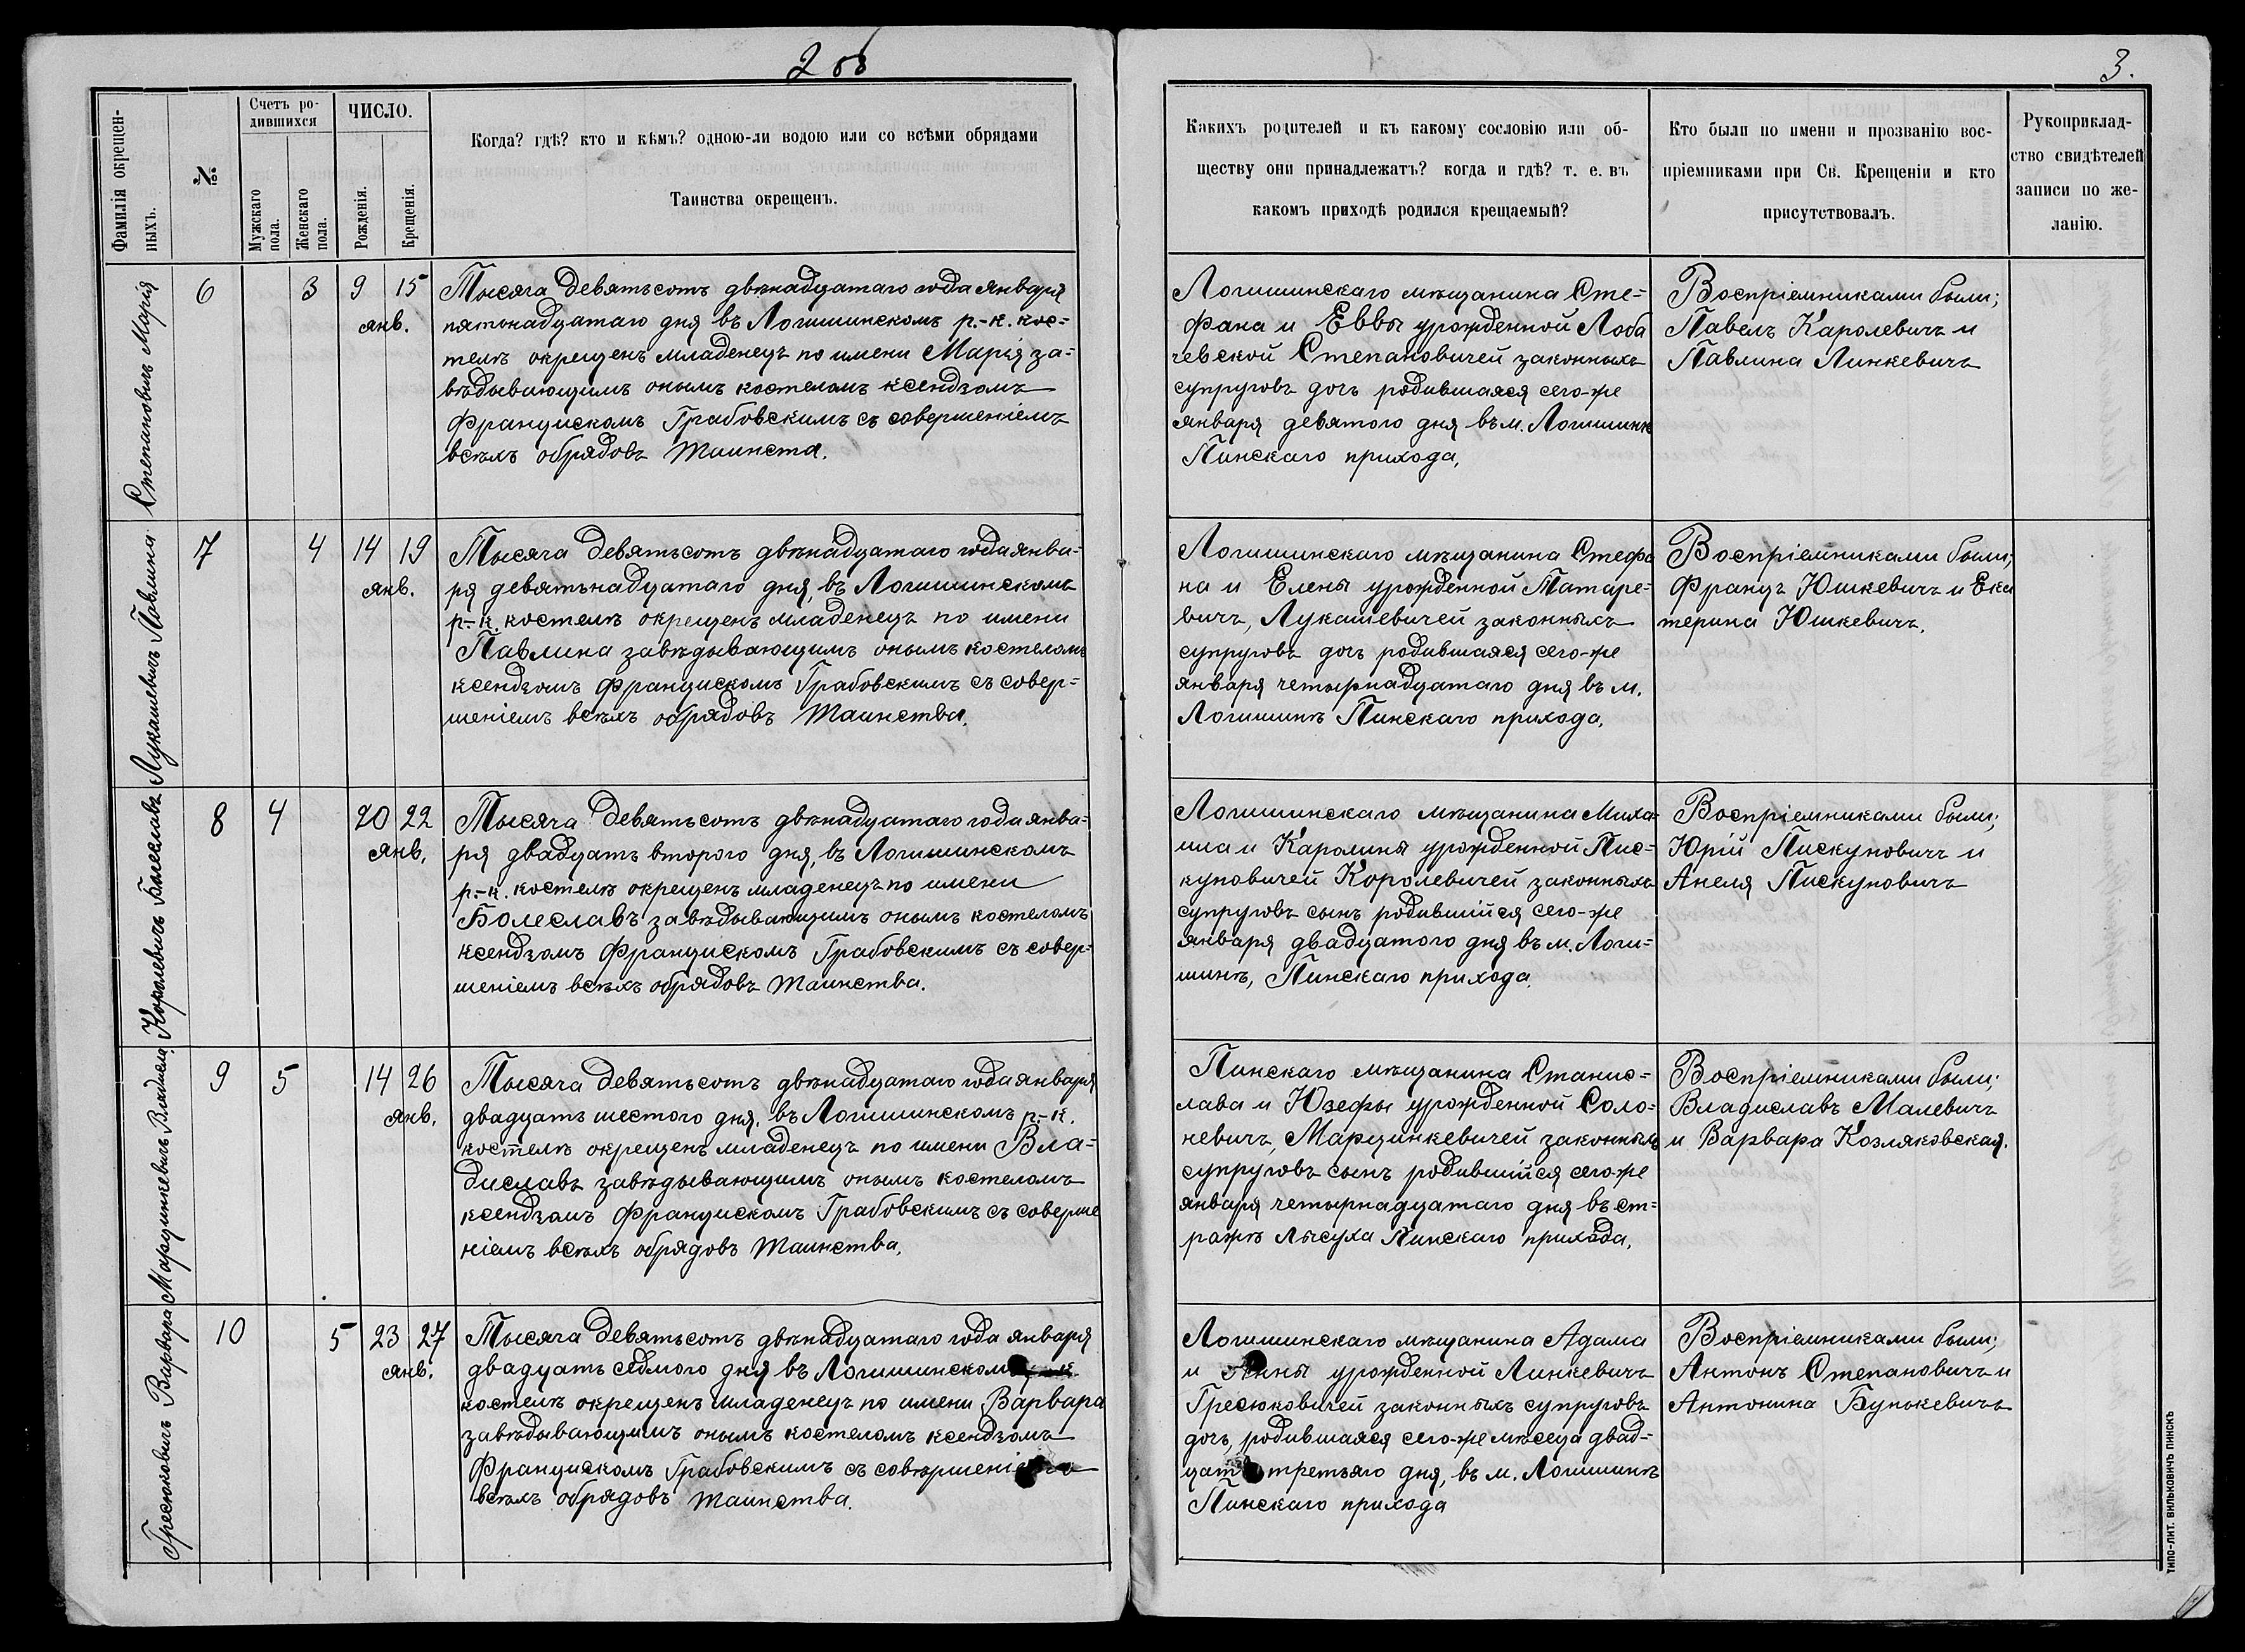 2 об
3.
Фамилія окрещен-
ныхъ.
№
Счетъ ро-
дившихся
Мужскаго
пола.
Женскаго
пола.
ЧИСЛО.
Рожденія.
Крещенія.
Когда? гдѣ? кто и кѣмъ? одною-ли водою или со всѣми обрядами
Таинства окрещенъ.
Какихъ родителей и къ какому сословію или об-
ществу они принадлежатъ? когда и гдѣ? т. е. въ
какомъ приходѣ родился крещаемый?
Кто были по имени и прозванію вос-
пріемниками при Св. Крещеніи и кто
присутствовалъ.
Рукоприклад-
ство свидѣтелей
записи по же-
ланію.
Степановичъ Марія
6
3
9
15
янв.
Тысяча девятьсотъ двѣнадцатаго года января
пятьнадцатаго дня въ Логишинскомъ р.-к. кос=
телѣ окрещенъ младенецъ по имени Марія за=
вѣдывающимъ онымъ костеломъ ксендзомъ
Францискомъ Грабовскимъ съ совершеніемъ
всѣхъ обрядовъ Таинста.
Логишинскаго мѣщанина Сте=
фана и Еввы урожденной Лоба
чевской Степановичей законныхъ
супруговъ дочь родившаяся сего-же
января девятого дня въ м. Логишинѣ
Пинскаго прихода,
Воспріемниками были;
Павелъ Каролевичъ и
Павлина Линкевичъ
Лукашевичъ Павлина
7
4
14
19
янв.
Тысяча девятьсотъ двѣнадцатаго года янва-
ря девятьнадцатаго дня, въ Логишинскомъ
р.-к. костелѣ окрещенъ младенецъ по имени
Павлина завѣдывающимъ онымъ костеломъ
ксендзомъ Францискомъ Грабовскимъ съ совер=
шеніемъ всѣхъ обрядовъ Таинства.
Логишинскаго мѣщанина Стефа
на и Елены урожденной Патаре=
вичъ, Лукашевичей законныхъ
супруговъ дочь родившаяся сего-же
января четырнадцатаго дня въ м.
Логишинѣ Пинскаго прихода.
Воспріемниками были;
Францъ Юшкевичъ и Ека
терина Юшкевичъ.
Королевичъ Болеславъ
8
4
20
22
янв.
Тысяча девятьсотъ двѣнадцатаго года янва-
ря двадцать второго дня, въ Логишинскомъ
р.-к. костелѣ окрещенъ младенецъ по имени
Болеславъ завѣдывающимъ онымъ костеломъ
ксендзомъ Францискомъ Грабовскимъ съ совер=
шеніемъ всѣхъ обрядовъ Таинства.
Логишинскаго мѣщанина Миха-
ила и Каролины урожденной Пис=
куповичей Королевичей законныхъ
супруговъ сынъ родившійся сего-же
января двадцатого дня въ м. Логи=
шинѣ, Пинскаго прихода.
Воспріемниками были;
Юрій Пискуповичъ и
Анеля Пискуповичъ
Марцинкевичъ Владисл.
9
5
14
26
янв.
Тысяча девятьсотъ двѣнадцатаго года января
двадцать шестого дня. въ Логишинскомъ р.-к.
костелѣ окрещенъ младенецъ по имени Вла=
диславъ завѣдывающимъ онымъ костеломъ
ксендзомъ Францискомъ Грабовскимъ съ соверше
ніемъ всѣхъ обрядовъ Таинства.
Пинскаго мѣщанина Станис=
лава и Юзефы урожденной Соло=
невичъ, Марцинкевичей законныхъ
супруговъ сынъ родившійся сего-же
января четырнадцатаго дня въ ст=
ражѣ Лысуха Пинскаго прихода.
Воспріемниками были;
Владиславъ Малевичъ
и Варвара Козляковская.
Гресюковичъ Варвара
10
5
23
27
янв.
Тысяча девятьсотъ двѣнадцатаго года января
двадцать седмого дня въ Логишинском
костелѣ окрещенъ младенецъ по имени Варвара
завѣдывающимъ онымъ костеломъ ксендзомъ
Францискомъ Грабовскимъ съ совершені
всѣхъ обрядовъ Таинства.
Логишинскаго мѣщанина Адама
и Анны урожденной Линкевичъ
Гресюковичей законныхъ супруговъ
дочь, родившаяся сего-же мѣсяца двад-
цать третьяго дня, въ м. Логишинѣ
Пинскаго прихода
Воспріемниками были;
Антонъ Степановичъ и
Антонина Бунькевичъ
ТИПО-ЛИТ. ВИЛЬКОВИЧЪ ПИНСКЪ